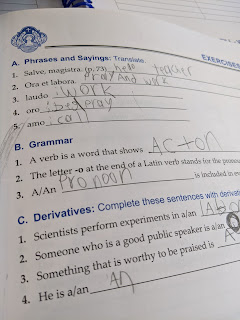 EXERCISES
A. Phrases and Sayings: Translate.
1. Salve, magistra. (p. 23) hello teacher
2. Ora et labora. Pray And work
3. laudo I work
4. oro I beg pray
5. amo I call
B. Grammar
1. A verb is a word that shows Action
2. The letter -o at the end of a Latin verb stands for the
3. A/An Pronoon is included in
C. Derivatives: Complete these sentences with
1. Scientists perform experiments in a/an
2. Someone who is a good public speaker is a/an
3. Something that is worthy to be praised is
4. He is a/an An